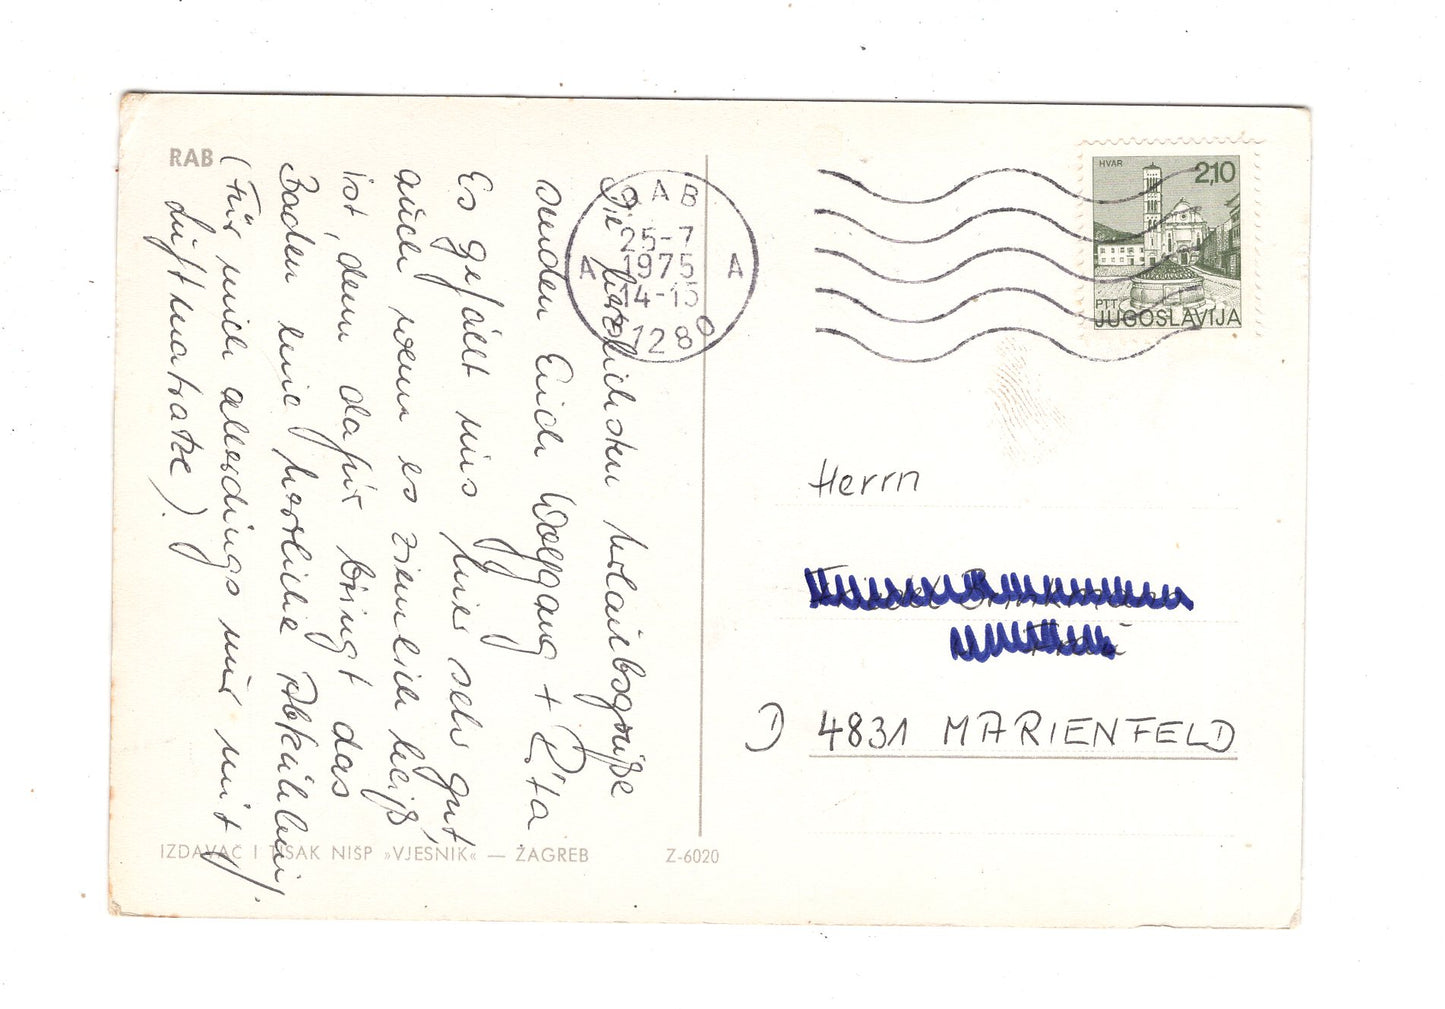 RAB
Die herzlichsten Urlaubsgrüße
senden Euch Wolfgang + Rita
Es gefällt uns hier sehr gut,
auch wenn es ziemlich heiß
ist, denn dafür bringt das
Baden eine herrliche Abkühlung.
(Für mich allerdings nur mit
Luftmatratze).
IZDAVAČ I TISAK NIŠP »VJESNIK« — ZAGREB
Z-6020
RAB
25-7
1975
14-15
A A
51280
HVAR
2,10
PTT
JUGOSLAVIJA
Herrn
Brinkmann
Frau
D 4831 MARIENFELD